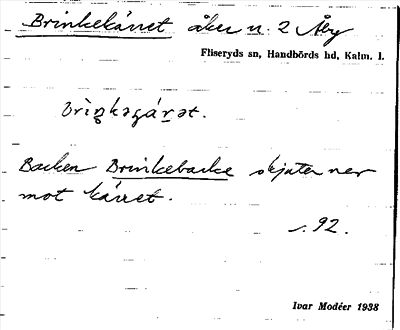 Brinkekärret åker n. 2 Åby
Fliseryds sn, Handbörds hd, Kalm. l.
Backen Brinkebacke skjuter ner
mot kärret.
s. 92.
Ivar Modéer 1938